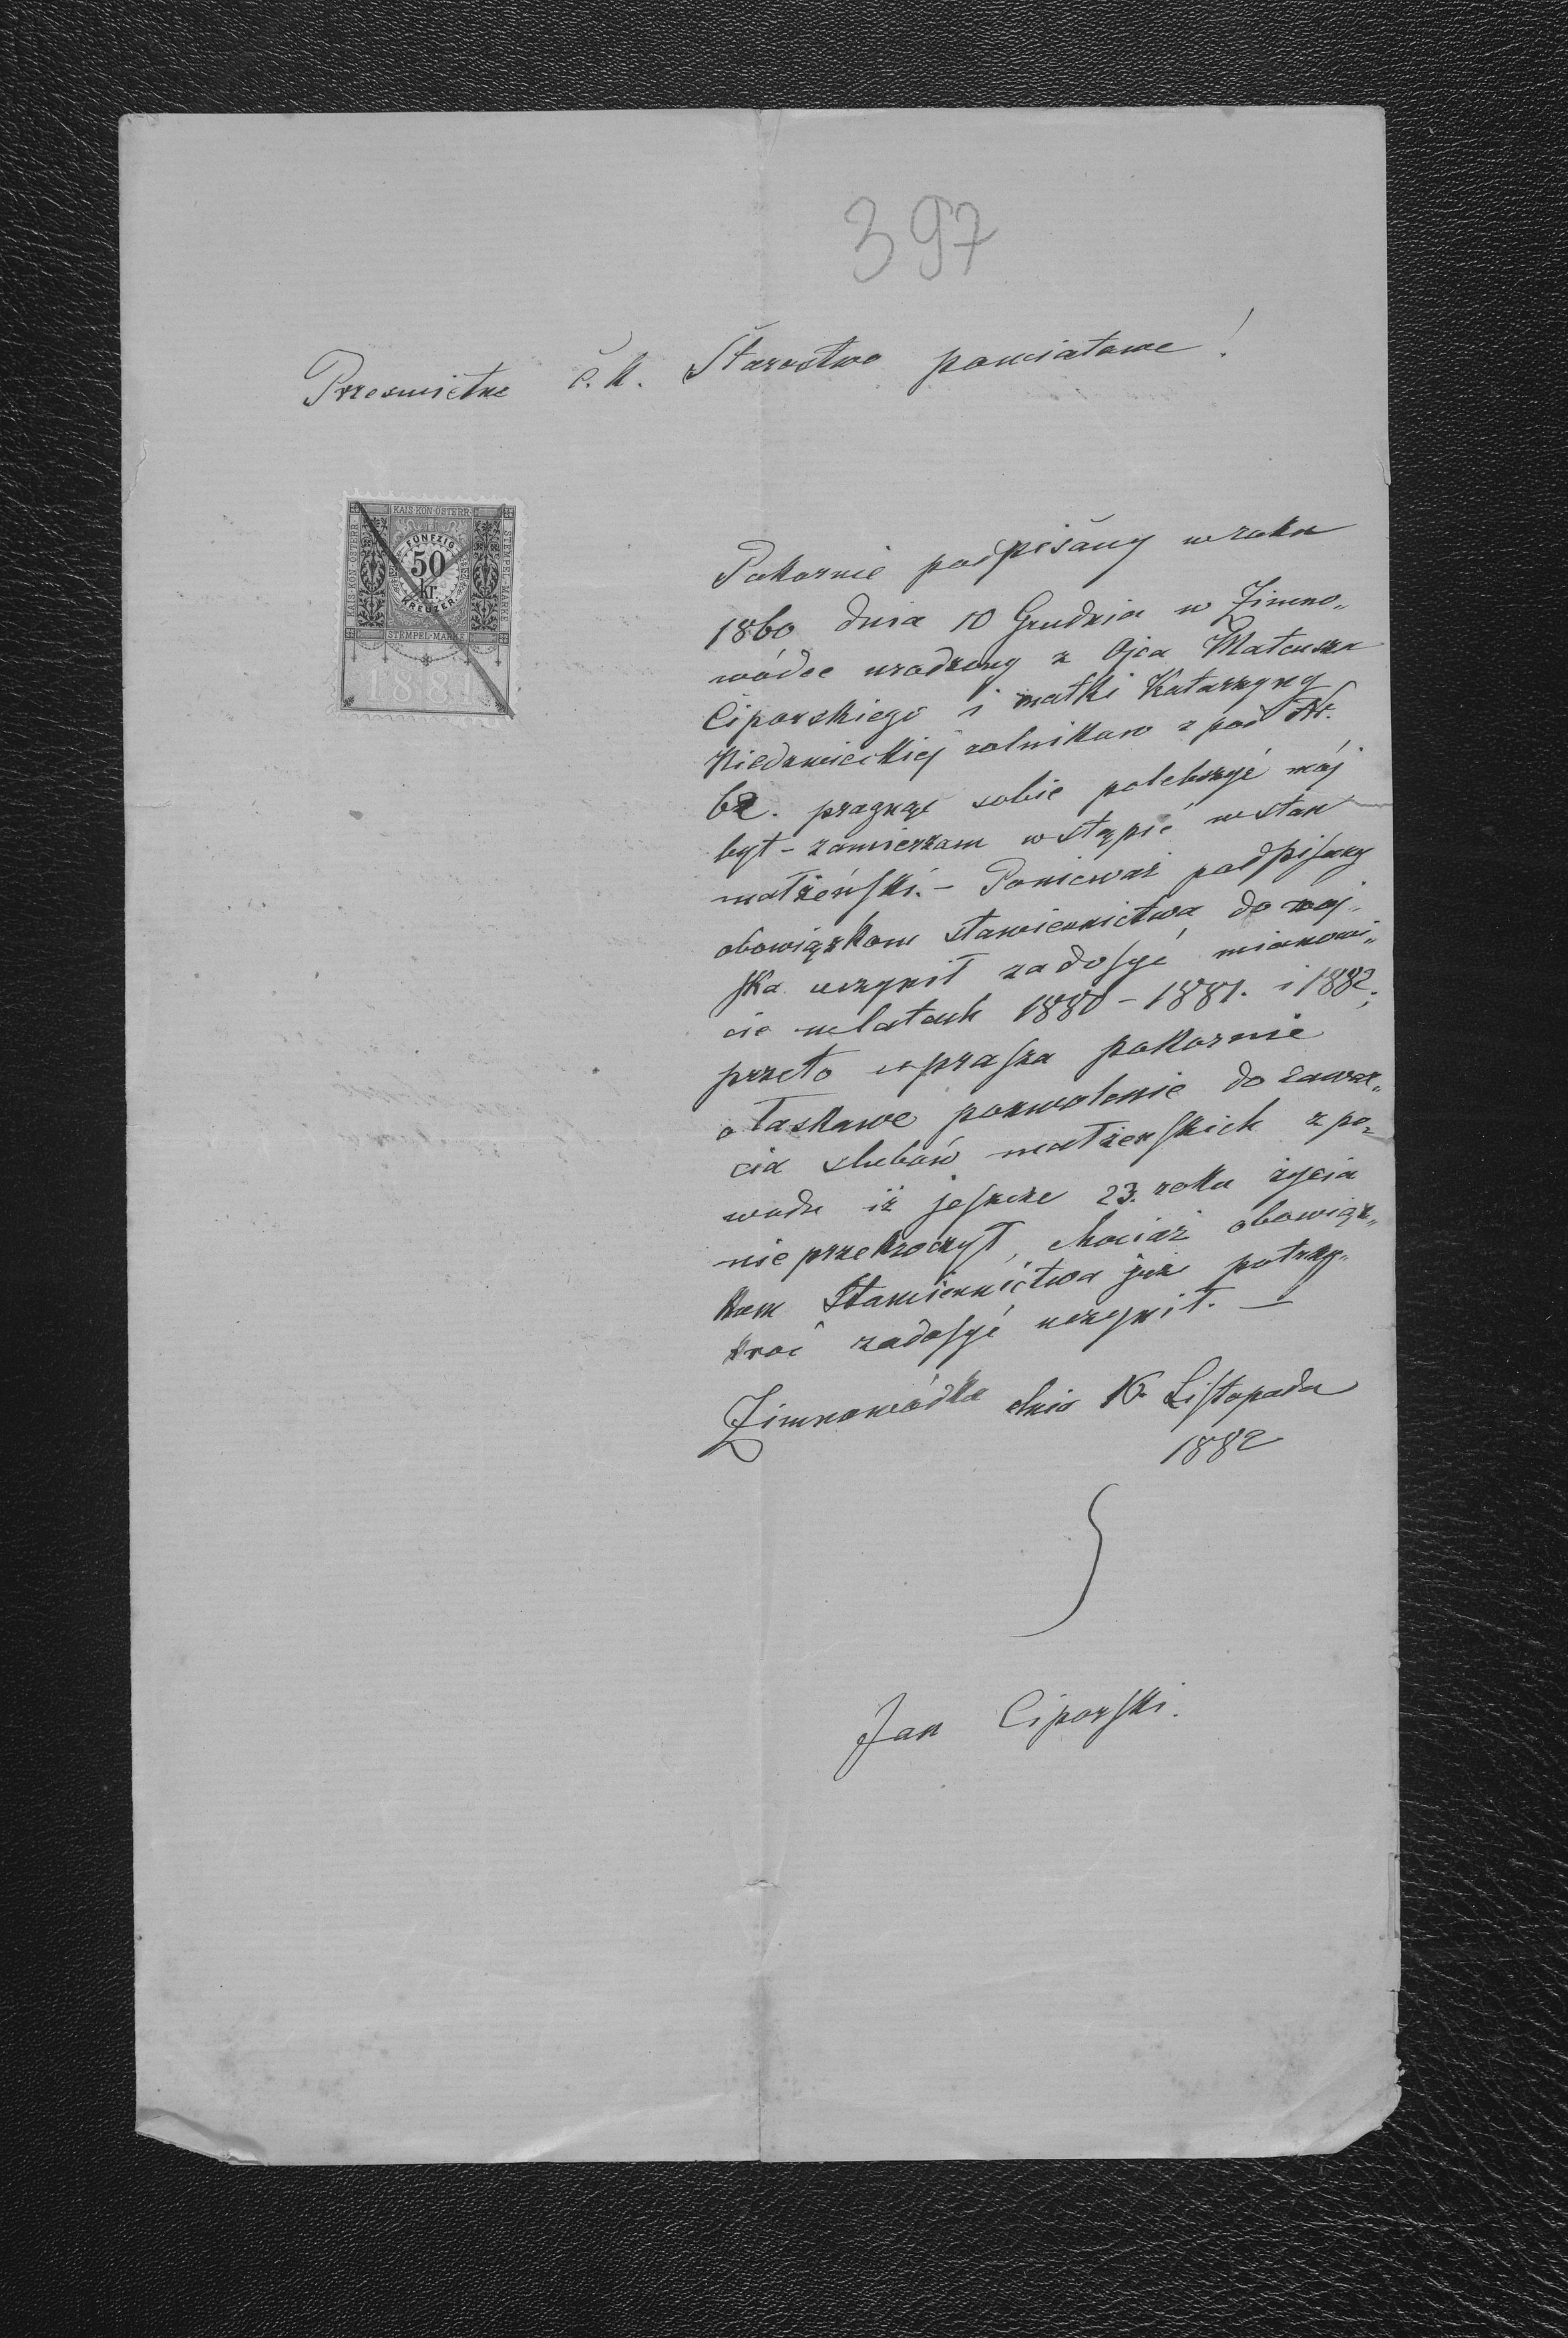 397
Prześwietne c. k. Starostwo powiatowe!
KAIS·KÖN·ÖSTERR·
KAIS·KÖN·ÖSTERR·
STEMPEL-MARKE
FÜNFZIG
50
kr.
KREUZER
STEMPEL-MARKE
1881
Pokornie podpisany w roku
1860 dnia 10 Grudnia w Zimno„
wódce urodzony z Ojca Mateusza
Ciporskiego i matki Katarzyny
Niedzwieckiej rolników z pod Nr.
62. pragnąć sobie polebszyć mój
byt – zamierzam wstąpić w stan
małżeński. – Ponieważ podpisany
obowiązkom stawiennictwa do woj„
ska uczynił zadosyć mianowi„
cie w latach 1880 – 1881. i 1882;
przeto uprasza pokornie
o łaskawe pozwolenie do zawar„
cia slubów małżenskich z po„
wodu iż jeszcze 23. roku życia
nie przekroczył, chociaż obowiąz„
kom Stawiennictwa już potrzy„
kroć zadosyć uczynił. —
Zimnowódka dnia 16. Listopada
1882
Jan Ciporski.